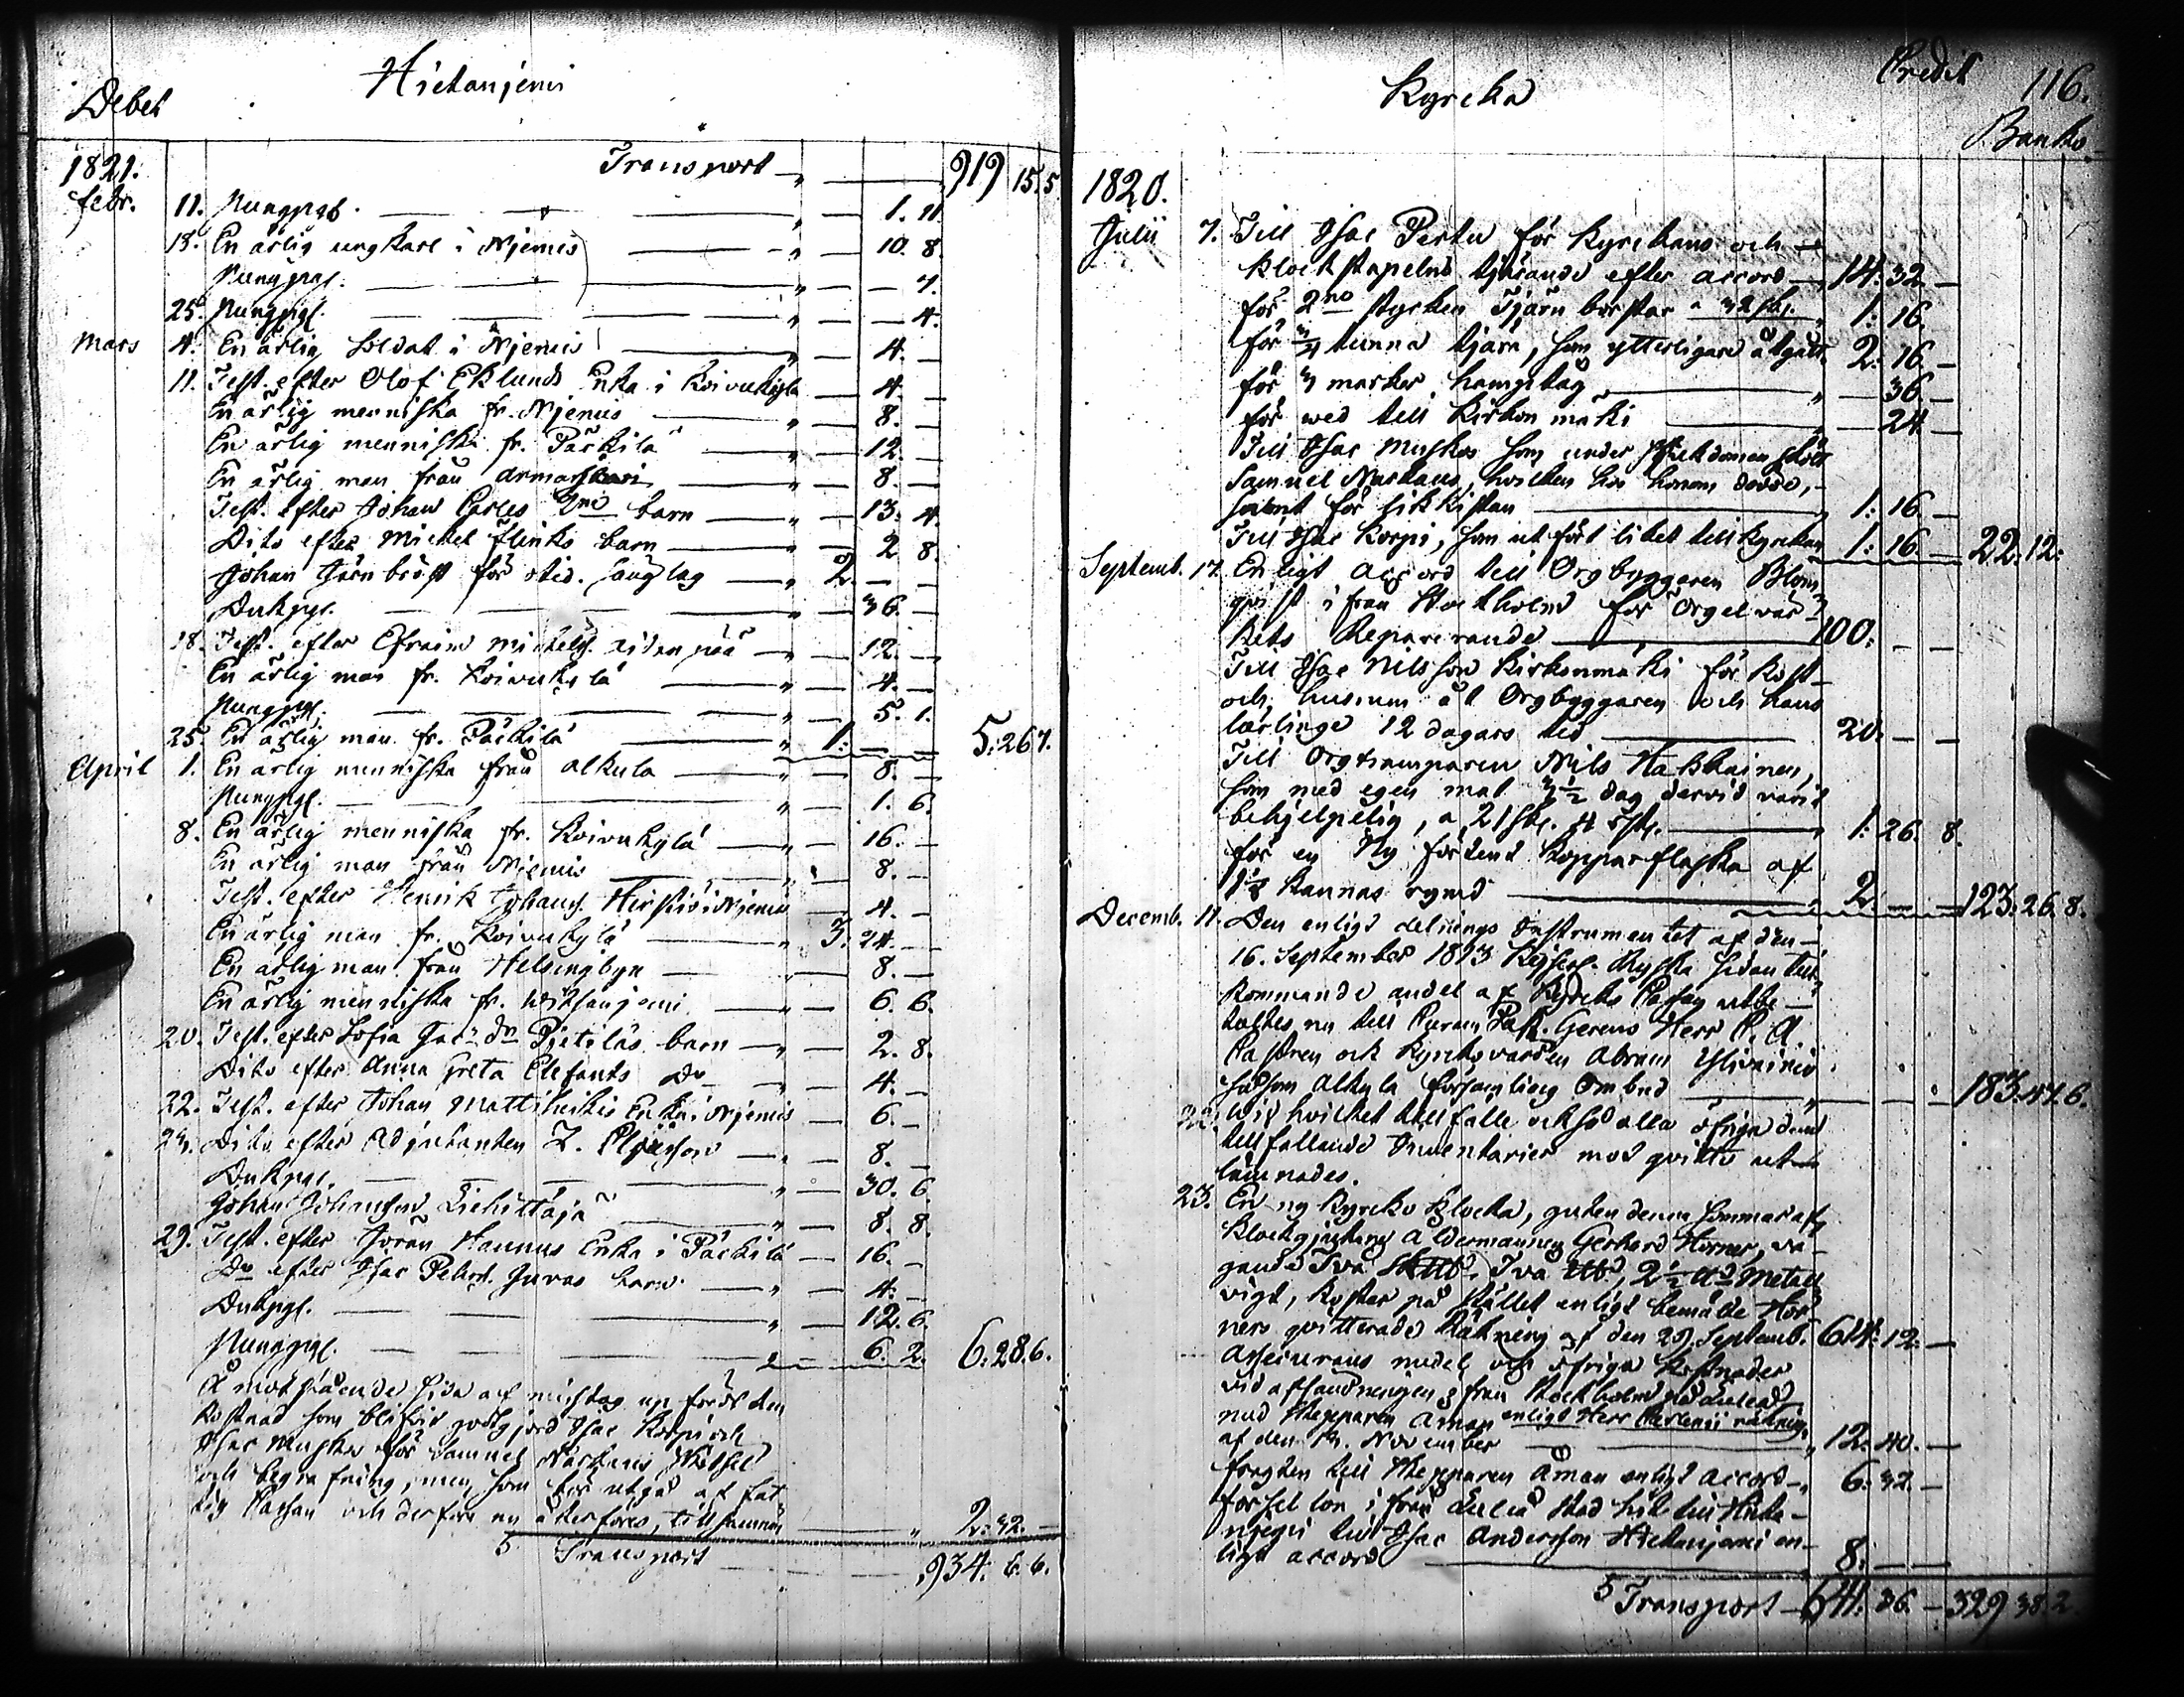 Debet Hietanjemi
1821. Transport 919 15. 5
Febr. 11. Pungpgl. 1. 11.
18. En ärlig ungkarl i Njemis 10. 8.
Pungpgl. 7.
25. Pungpgl. 4.
Mars 4. En ärlig Soldat i Njemis 4. —
11. Test. efter Olof Eklunds Enka i Koivukylä 4. —
En ärlig menniska fr. Njemis 8. —
En ärlig menniska fr. Päckilä 12. —
En ärlig man från 8. —
Test. efter Johan Carles 2ne barn 13. 4.
Dito efter Mickel Flinks barn 2. 8.
Johan Järnbröst för 2. — —
Dukpgl. 36. —
18. Test. efter Efraim Michels. 12. —
En ärlig man fr. Koivukylä 4. —
Pungpgl. 5. 1.
25. En ärlig man fr. Päckilä 1. — — 5. 26 7.
April 1. En ärlig menniska från Alkula 8. —
Pungpgl. 1. 6.
8. En ärlig menniska fr. Koivukylä 16. —
En ärlig man från Njemis 8. —
Test. efter Henrik Johans. i Njemis 4. —
En ärlig man fr. Koivukylä 3. 24. —
En ärlig man från Helsingbyn 8. —
En ärlig menniska fr. 6. 6.
20. Test. efter Sofia Jacs dr Pietiläs barn 2. 8.
Dito efter Anna Greta Elefants Do 4. —
22. Test. efter Johan Matti Enka i Njemis 6. —
Dito efter Adjutanten Z. 8. —
Dukpgl. 30. 6.
Johan Johansson 8. 8.
29. Test. efter Göran Hannus Enka i Päckilä 16. —
Do efter Isac Peters. Juvas barn 4. —
Dukpgl. 12. 6.
Pungpgl. 6. 2. 6. 28. 6.
Å motstående sida af misstag upfördt den
kostnad som blifvit godtgjord Isac Korpi och
Isac Muskos för Samuel Markus
och begrafning, men som för utgå af fat
tig Cassan och derföre nu återföres, tillsamman 2. 32. —
5 Transport 934. 6. 6.
Kyrcka Credit 116.
Banko
1820.
Julii 7. Till Isac Pertu för Kyrckans och
Klockstapelns tjärande efter accord 14. 32 —
för 2ne stycken Tjärn borstar a 32 sk. 1: 16.
för 3/4 tunna tjära, som ytterligare åtgått 2. 16 —
för 3 marker hampetåg 36. —
för wed till Kirkonmäki 24 —
Till Isac Muskos som under sjukdomen skött
Samuel Markus, hvilken hos honom dödde,
samt för likkistan 1: 16. —
Till Isac Korpi, som utfört liket till kyrckan 1: 16. — 22. 12:
Septemb. 17. Enligt Accord till Orgbyggaren Blom
qvist ifrån Stockholm för Orgelvär
kets Reparerande 100. — —
Till Isac Nilsson Kirkonmäki för kost
och husrum åt Orgbyggaren och hans
lärlinge 12 dagars tid 20. — —
Till Orgtramparen Nils Hakkainen,
som med egen mat 3½ dag dervid varit
behjelpelig, a 21 sk. 1: 26. 8.
för en Ny förtent Kopparflaska af
1½ Kannas rymd 2. — — 123. 26. 8.
Decemb. 11. Den enligt delnings Instrumentet af den
16. September 1813 Kejserl. Ryska sidan till
kommande andel af Kyrcko Cassan utbe
taltes nu till Past. Gerens Herr C. A.
Castren och Kyrckovärden Abram
såsom Alkula församlings Ombud 183. 47. 6.
22. Wid hvilket tillfälle ock så alla öfriga dem
tillfallande Inventarier mot qvitto ut
lämnades.
23. En ny kyrcko klocka, guten denna sommar af
Klockgjutaren Åldermannen Gerhard Horner, vä
gande Två Två 2½ Metall
vigt, kostar på stället enligt bemälde Hor
ners qvitterade Räkning af den 29. Septemb. 614. 12. —
Assecurans medel och öfriga kostnader
vid afsändningen från Stockholm
med Skepparen Åman enligt Herr räkning
af den November 12. 40. —
fragten till Skepparen Åman enligt accord 6. 32. —
forsel lön ifrån Luleå stad hit till Hieta
njemi till Isac Andersson Hietanjemi en
ligt accord 8. — —
5 Transport 641. 36. — 329 38. 2.